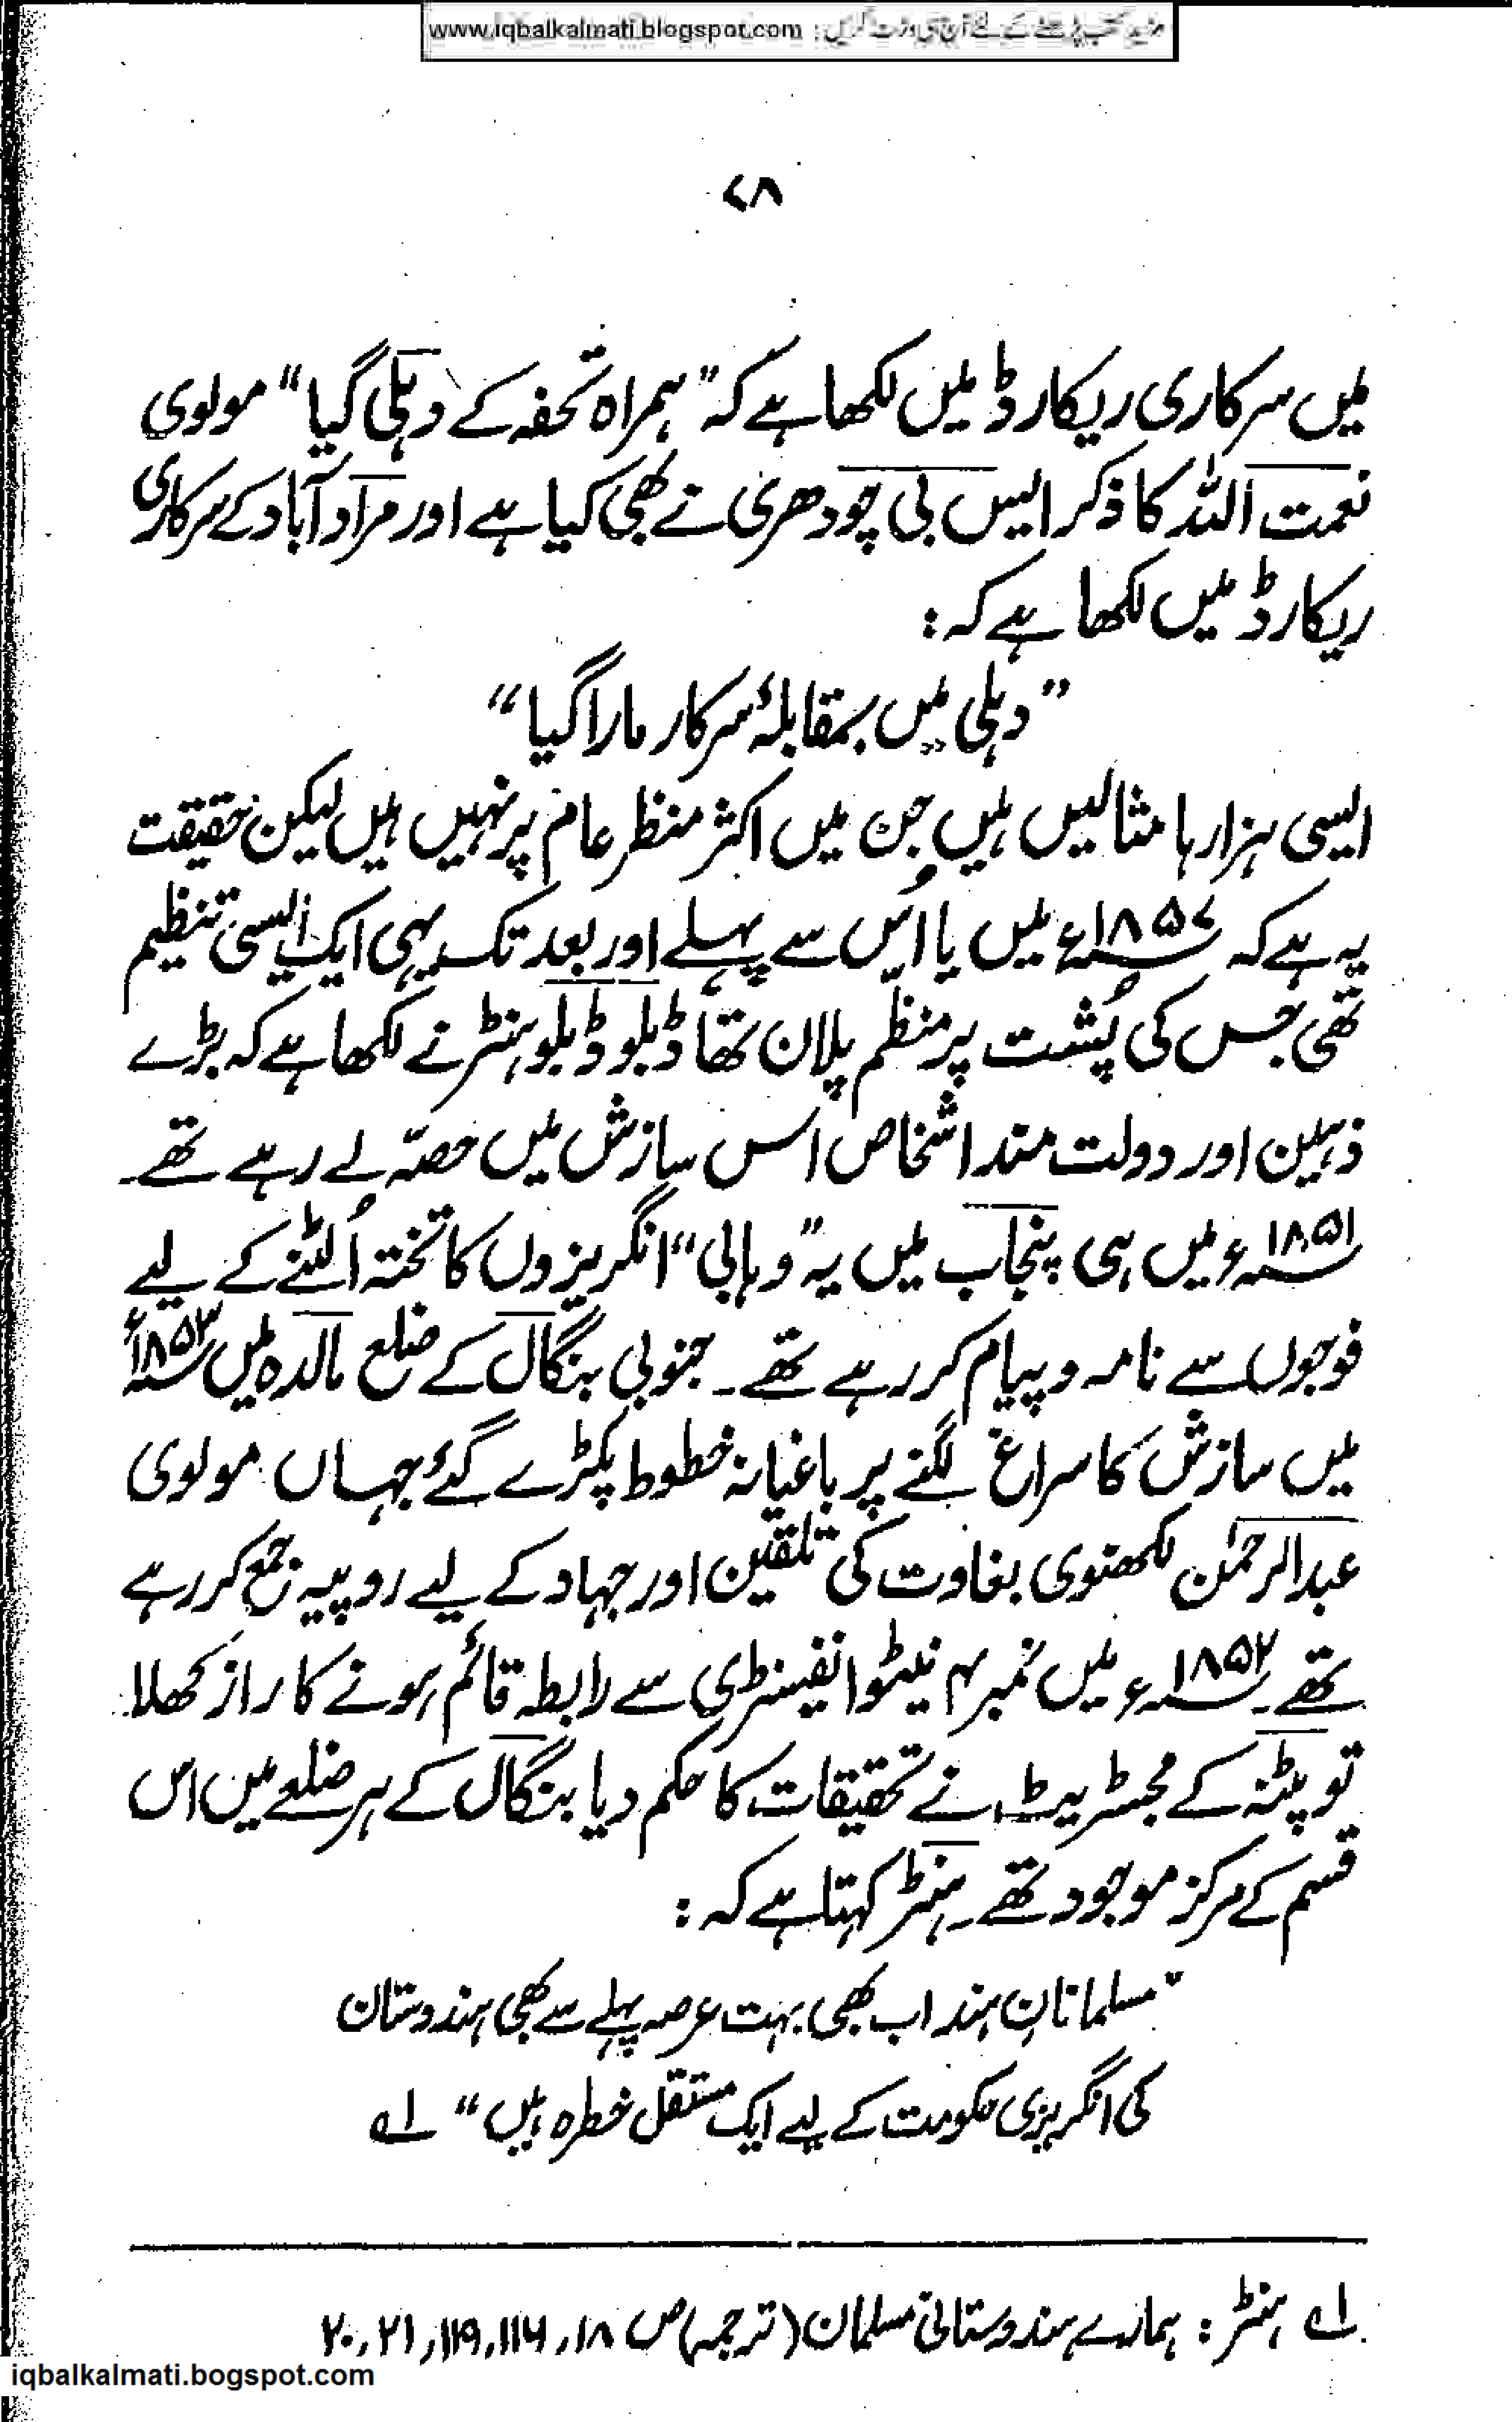 www.iqbalkalmati.blogspot.com : مزید کتب پڑھنے کے لئے آج ہی وزٹ کریں
۷۸
میں سرکاری ریکارڈ میں لکھا ہے کہ "ہمراہ تحفہ کے دہلی گیا" مولوی
نعمت اللہ کا ذکر ایس بی چودھری نے بھی کیا ہے اور مراد آباد کے سرکاری
ریکارڈ میں لکھا ہے کہ:
"دہلی میں بمقابلۂ سرکار مارا گیا"
ایسی ہزارہا مثالیں ہیں جن میں اکثر منظر عام پر نہیں ہیں لیکن حقیقت
یہ ہے کہ ۱۸۵۷ء میں یا اُس سے پہلے اور بعد تک یہی ایک ایسی تنظیم
تھی جس کی پُشت پر منظم پلان تھا ڈبلو ڈبلو ہنٹر نے لکھا ہے کہ بڑے
ذہین اور دولت مند اشخاص اس سازش میں حصہ لے رہے تھے۔
۱۸۵۱ء میں ہی پنجاب میں یہ "وہابی" انگریزوں کا تختہ اُلٹنے کے لیے
فوجوں سے نامہ و پیام کر رہے تھے۔ جنوبی بنگال کے ضلع مالدہ میں ۱۸۵۳ء
میں سازش کا سراغ لگنے پر باغیانہ خطوط پکڑے گئے جہاں مولوی
عبدالرحمٰن لکھنوی بغاوت کی تلقین اور جہاد کے لیے روپیہ جمع کر رہے
تھے۔ ۱۸۵۲ء میں نمبر ۴ نیٹو انفینٹری سے رابطہ قائم ہونے کا راز کھلا
تو پٹنہ کے مجسٹریٹ نے تحقیقات کا حکم دیا بنگال کے ہر ضلعے میں اس
قسم کے مرکز موجود تھے۔ ہنٹر کہتا ہے کہ:
"مسلمانانِ ہند اب بھی بہت عرصہ پہلے سے بھی ہندوستان
کی انگریزی حکومت کے لیے ایک مستقل خطرہ ہیں" ۱ے
۱ے ہنٹر: ہمارے ہندوستانی مسلمان (ترجمہ) ص ۱۸، ۱۱۶، ۱۱۹، ۲۱، ۲۰
iqbalkalmati.bogspot.com